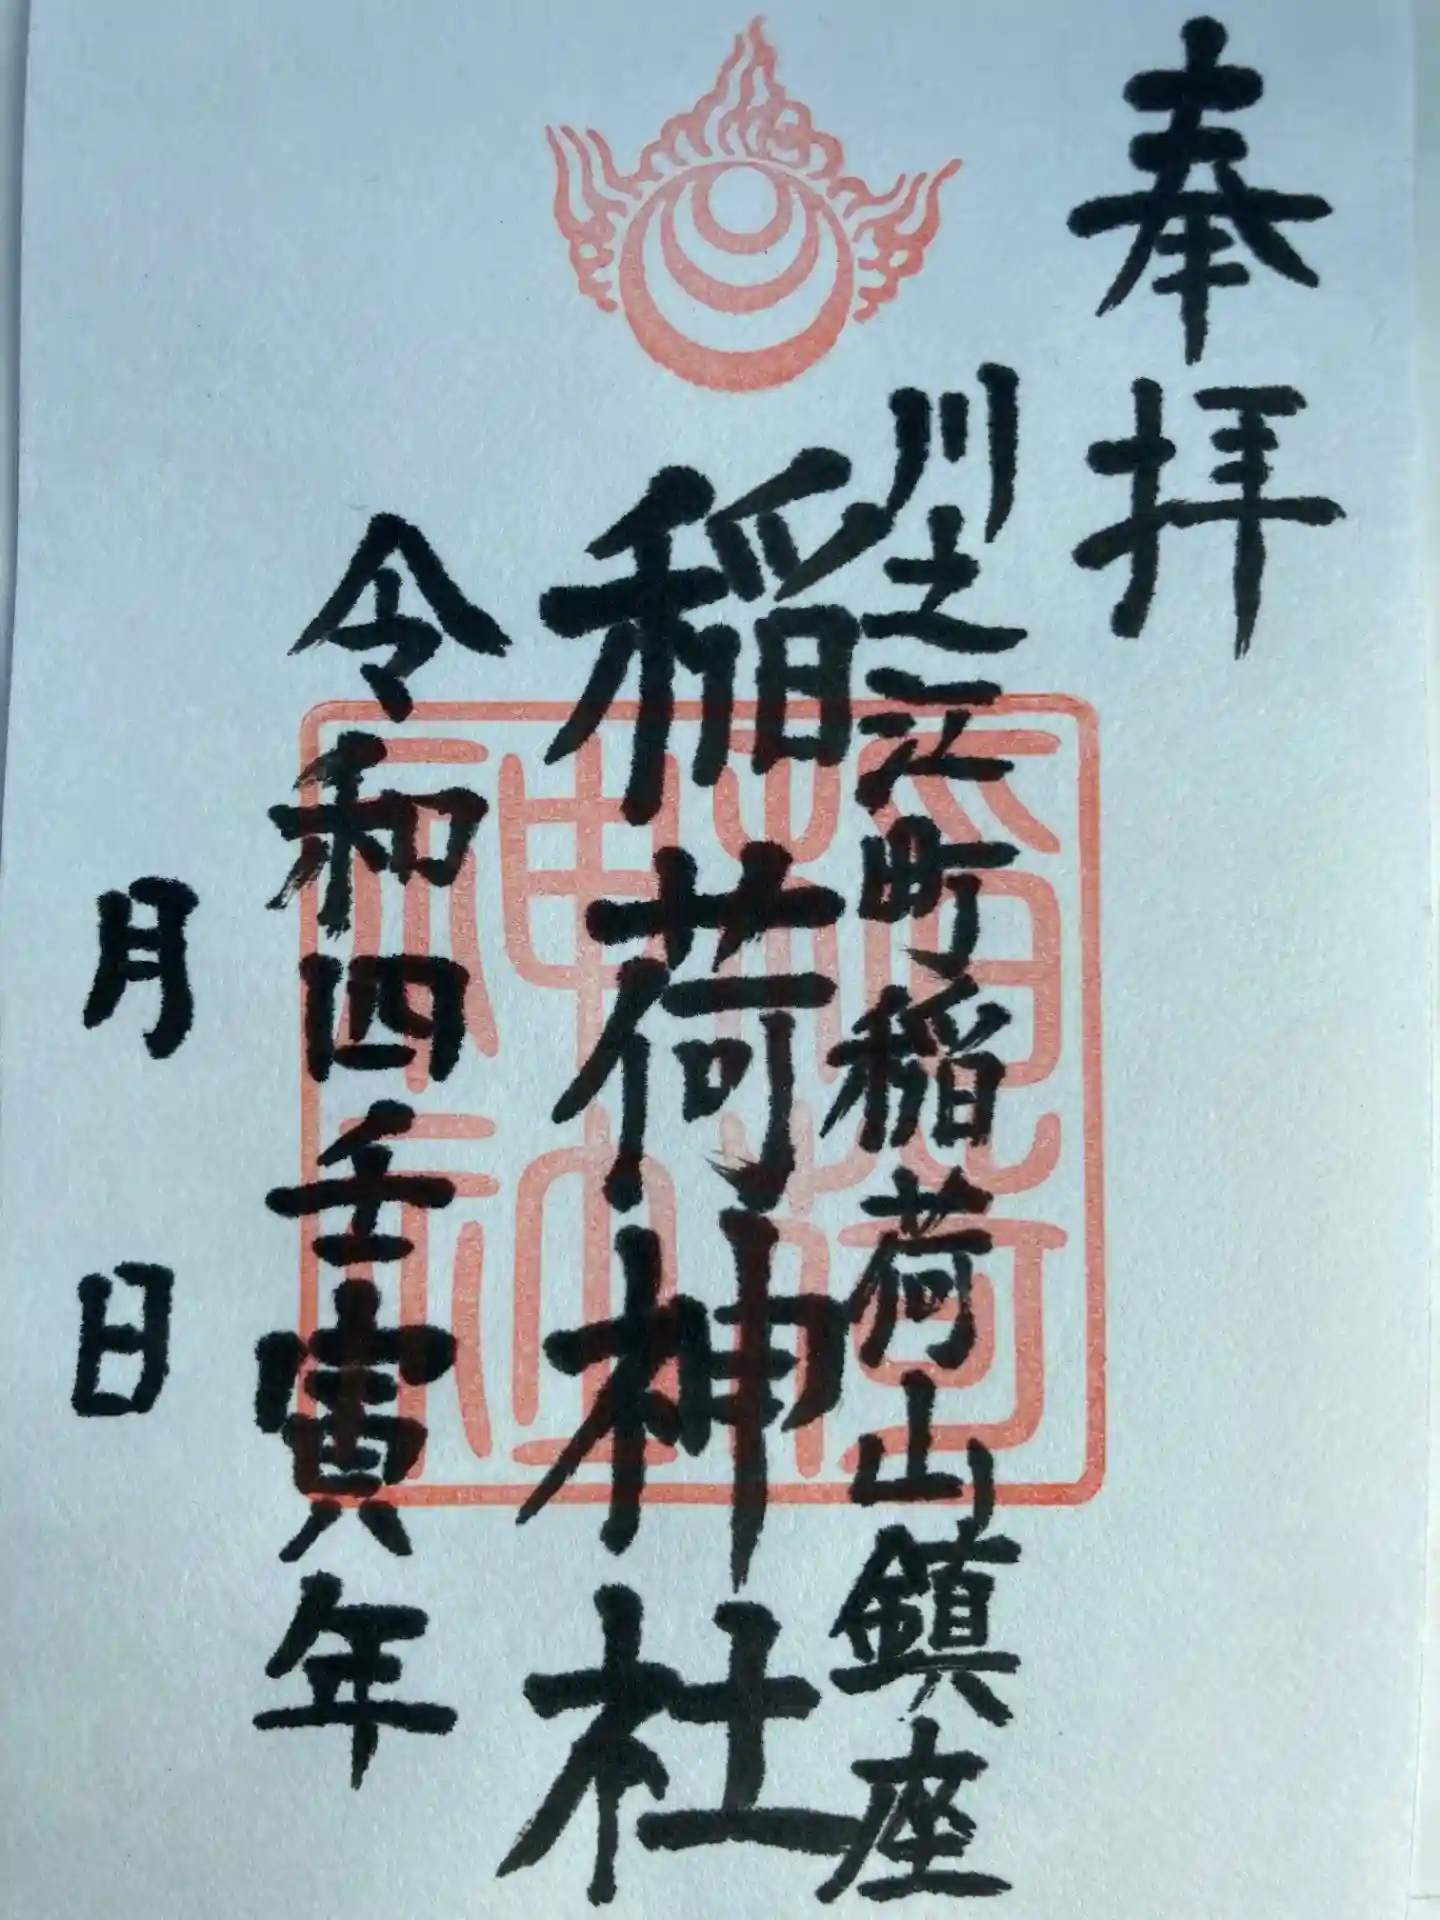 奉拝
川之江町稲荷山鎮座
稲荷神社
令和四壬寅年
月日
稲荷神社